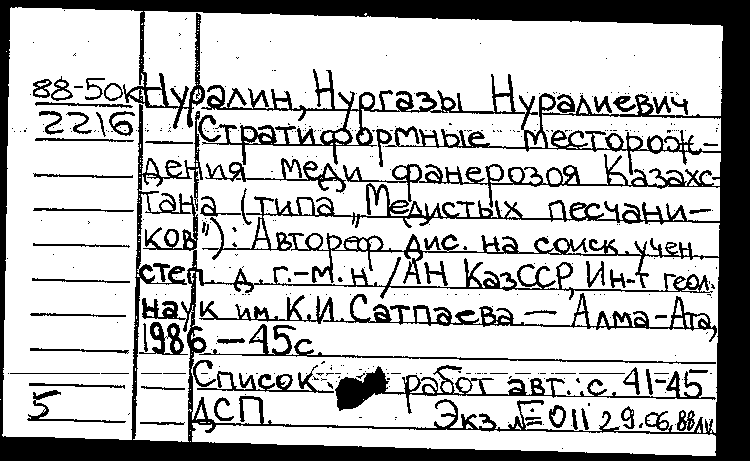 88-50к Нуралин, Нургазы Нуралиевич
2216 Стратиформные месторож-
дения меди фанерозоя Казахс-
тана (типа „Медистых песчани-
ков"): Автореф. дис. на соиск. учен.
степ. д. г.-м. н. /АН КазССР, Ин-т геол.
наук им. К.И. Сатпаева. — Алма-Ата,
1986. — 45с.
Список работ авт.: с. 41-45
5 ДСП. Экз. № 011 29.06.88